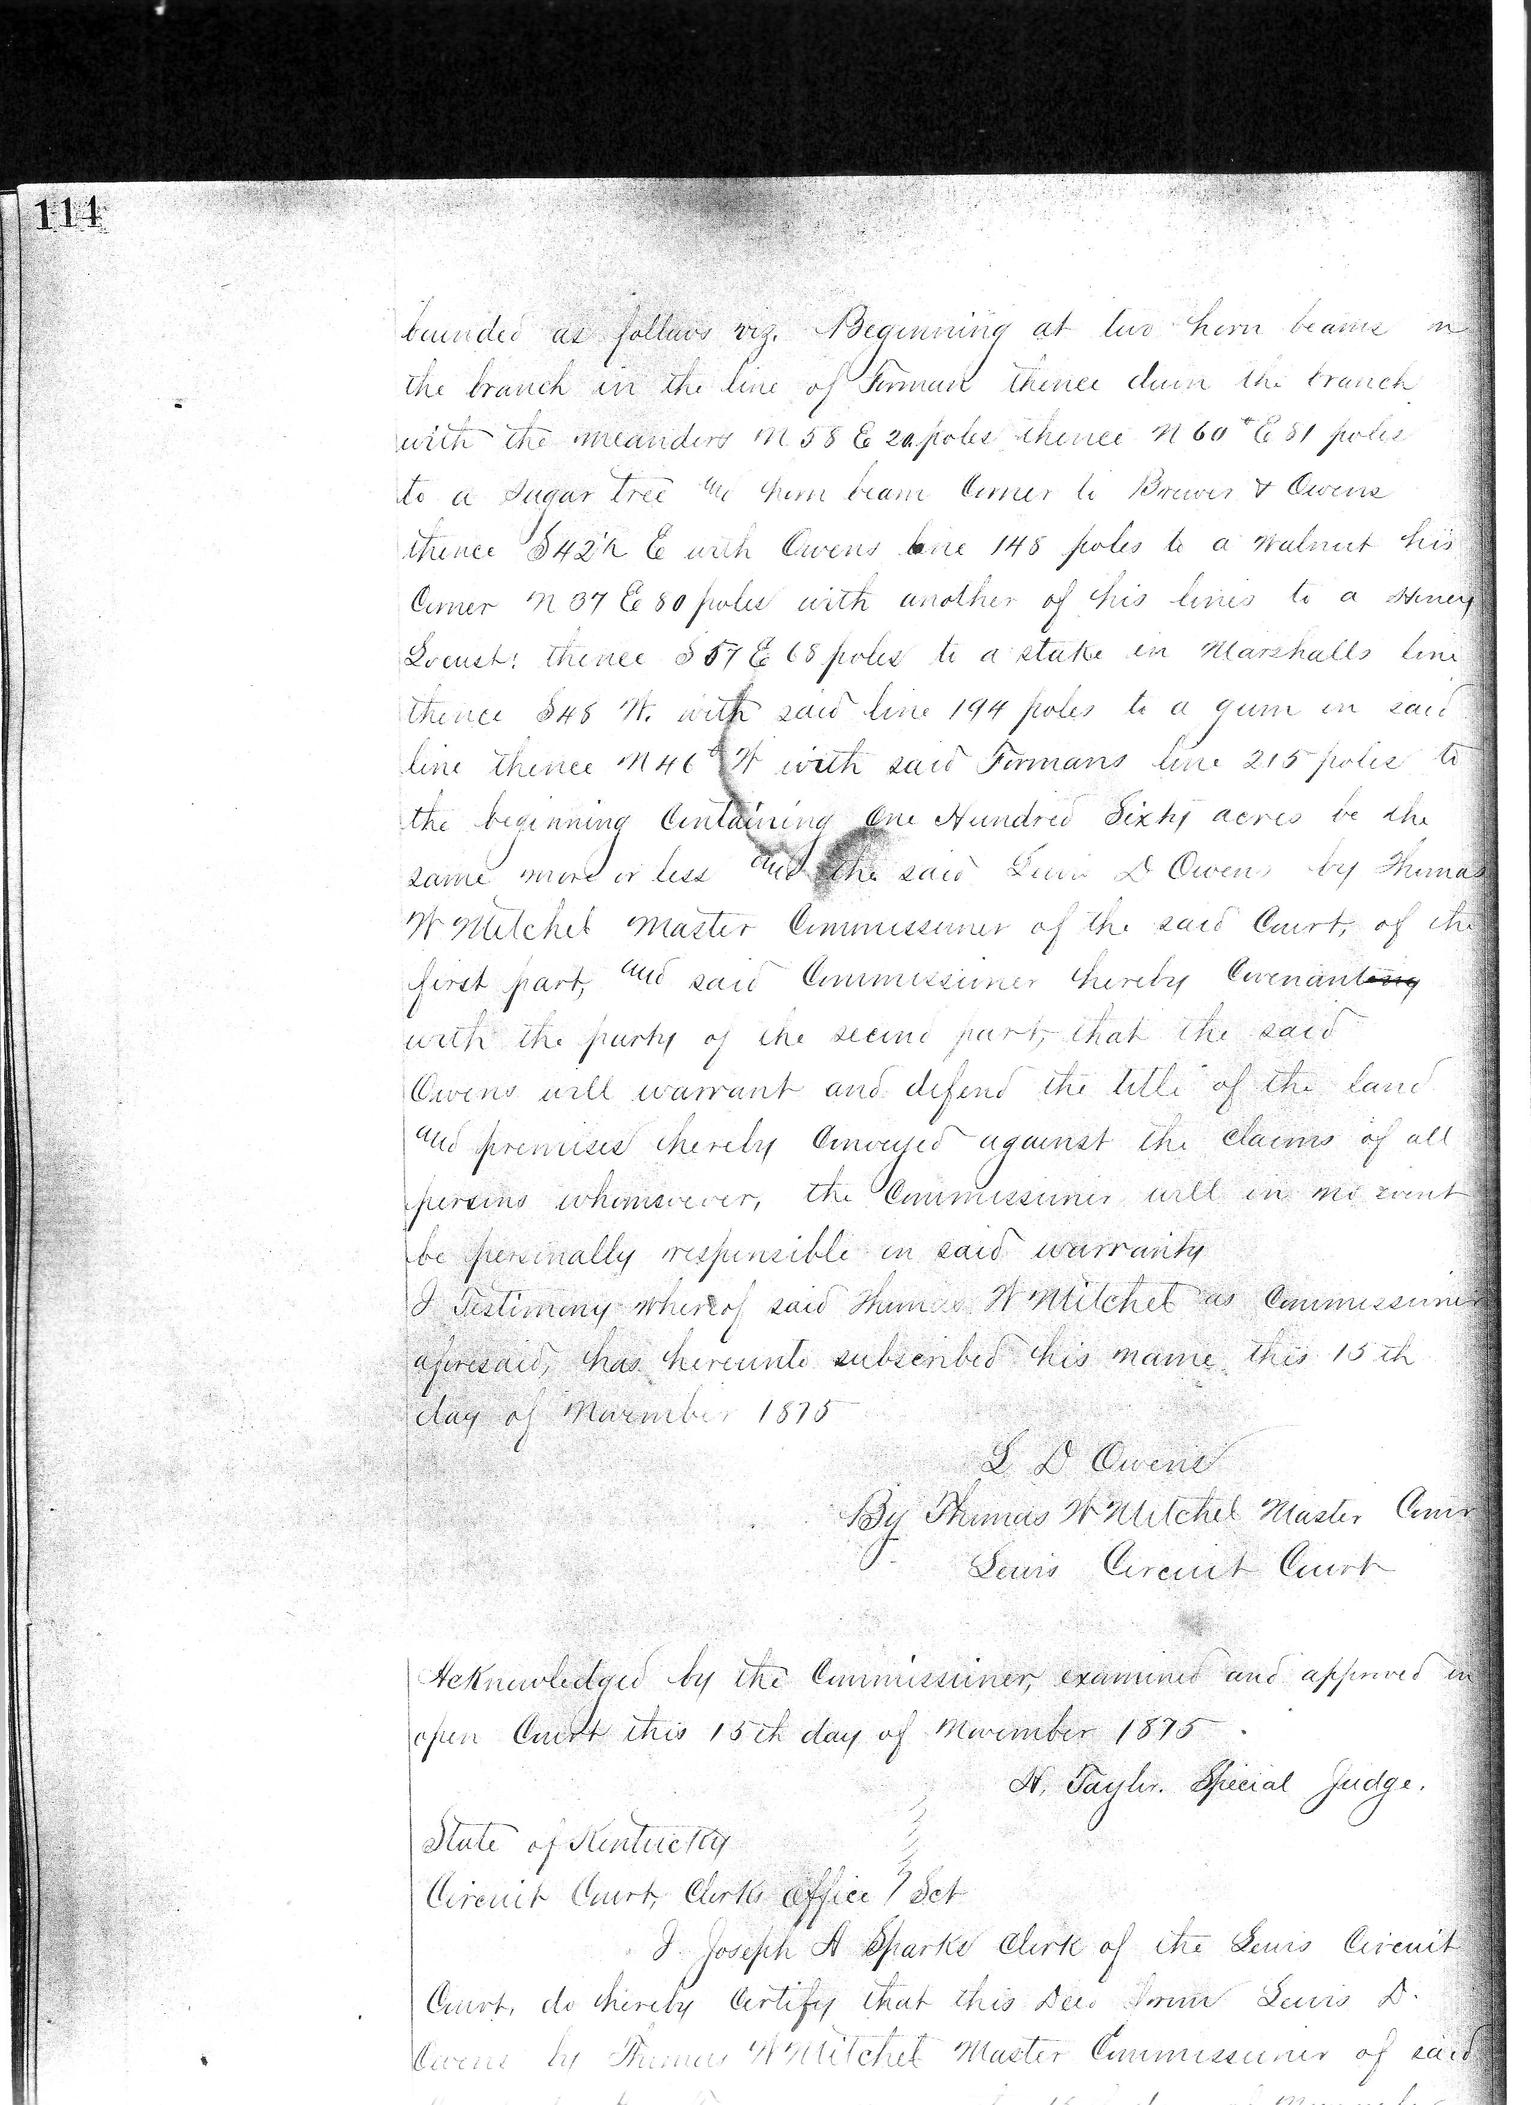 114
bounded as follows viz. Beginning at two horn beams in
the branch in the line of Forman thence down the branch
with the meanders N 58 E 20 poles thence N 60° E 81 poles
to a sugar tree and horn beam Corner to Brewer & Owens
thence S 42½ E with Owens line 148 poles to a Walnut his
Corner N 37 E 80 poles with another of his lines to a Honey
Locust: thence S 57 E 68 poles to a stake in Marshalls line
thence S 48 W. with said line 194 poles to a gum in said
line thence N 46° W with said Formans line 215 poles to
the beginning Containing One Hundred Sixty acres be the
same more or less and the said Lewis D Owens by Thomas
W Mitchel Master Commissioner of the said Court, of the
first part, and said Commissioner hereby Covenanting
with the party of the second part, that the said
Owens will warrant and defend the title of the land
and premises hereby Conveyed against the claims of all
persons whomsoever, the Commissioner will in no event
be personally responsible on said warranty
I Testimony whereof said Thomas W Mitchel as Commissioner
aforesaid, has hereunto subscribed his name this 15th
day of November 1875
L D Owens
By Thomas W Mitchel Master Comr
Lewis Circuit Court
Acknowledged by the Commissioner, examined and approved in
open Court this 15th day of November 1875.
H. Taylor. Special Judge.
State of Kentucky
Circuit Court, Clerks Office } Sct
I Joseph A Sparks Clerk of the Lewis Circuit
Court, do hereby Certify that this Deed from Lewis D.
Owens by Thomas W Mitchel Master Commissioner of said